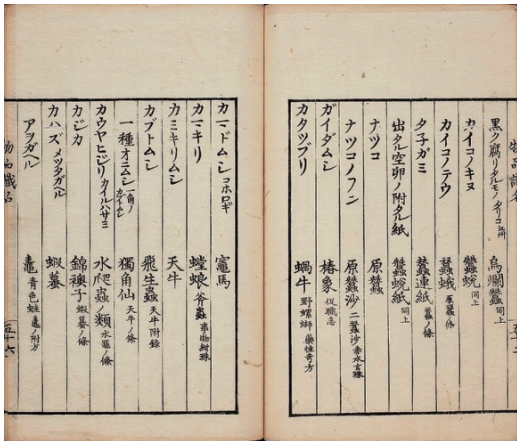 物品識名
黒ク腐リタルモノ 烏爛蠶 同上
カイコノキヌ 蠶蛻 同上
カイコノテウ 蠶蛾 原蠶ノ條
タ子ガミ 蠶連紙 蠶ノ條
出タル空卵ノ附タル紙 蠶蛻紙 同上
ナツコ 原蠶
ナツコノフン 原蠶沙 二蠶沙
ガイダムシ 椿象
カタツブリ 蝸牛 野螺螄
カマドムシ コホロギ 竈馬
カマキリ 螳螂 斧蟲
カミキリムシ 天牛
カブトムシ 飛生蟲 天牛附録
一種オニムシ 一角ノカブトムシ 獨角仙 天牛ノ條
カウヤヒジリ カイルハサミ 水爬蟲ノ類 水黽ノ條
カジカ 錦襖子 蝦蟇ノ條
カハズ メツタガヘル 蝦蟇
アヲガヘル 鼃 青色蛙 鼃ノ附方
物品識名
五十六